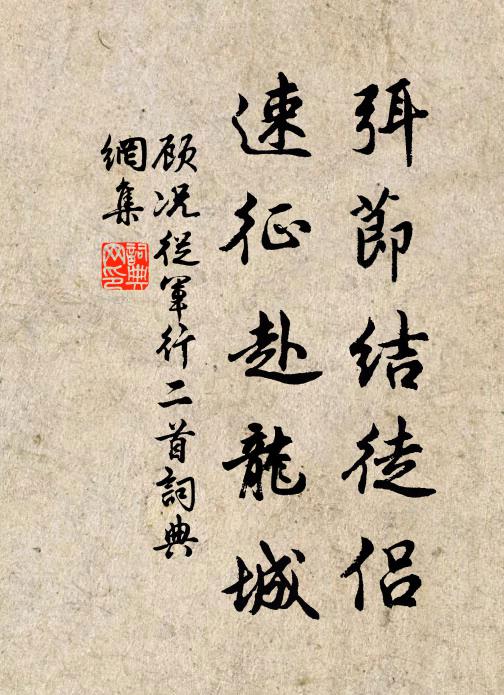 弭節結徒侶
速征赴龍城
顧况從軍行二首詞典
網集
詞典网印